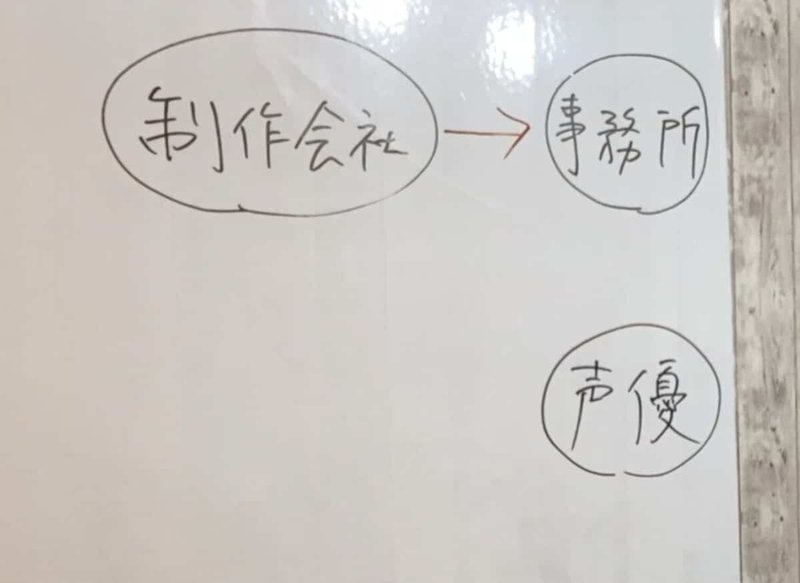 制作会社 → 事務所
声優